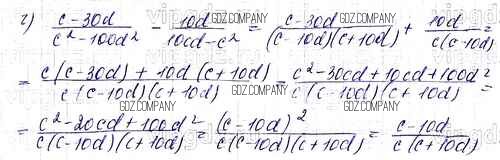 2) (c-30d)/(c²-100d²) - 10d/(10cd-c²) = (c-30d)/((c-10d)(c+10d)) + 10d/(c(c-10d)) =
= (c(c-30d)+10d(c+10d))/(c(c-10d)(c+10d)) = (c²-30cd+10cd+100d²)/(c(c-10d)(c+10d)) =
= (c²-20cd+100d²)/(c(c-10d)(c+10d)) = (c-10d)²/(c(c-10d)(c+10d)) = (c-10d)/(c(c+10d))
GDZ.COMPANY
GDZ.COMPANY
GDZ.COMPANY
GDZ.COMPANY
GDZ.COMPANY
GDZ.COMPANY
GDZ.COMPANY